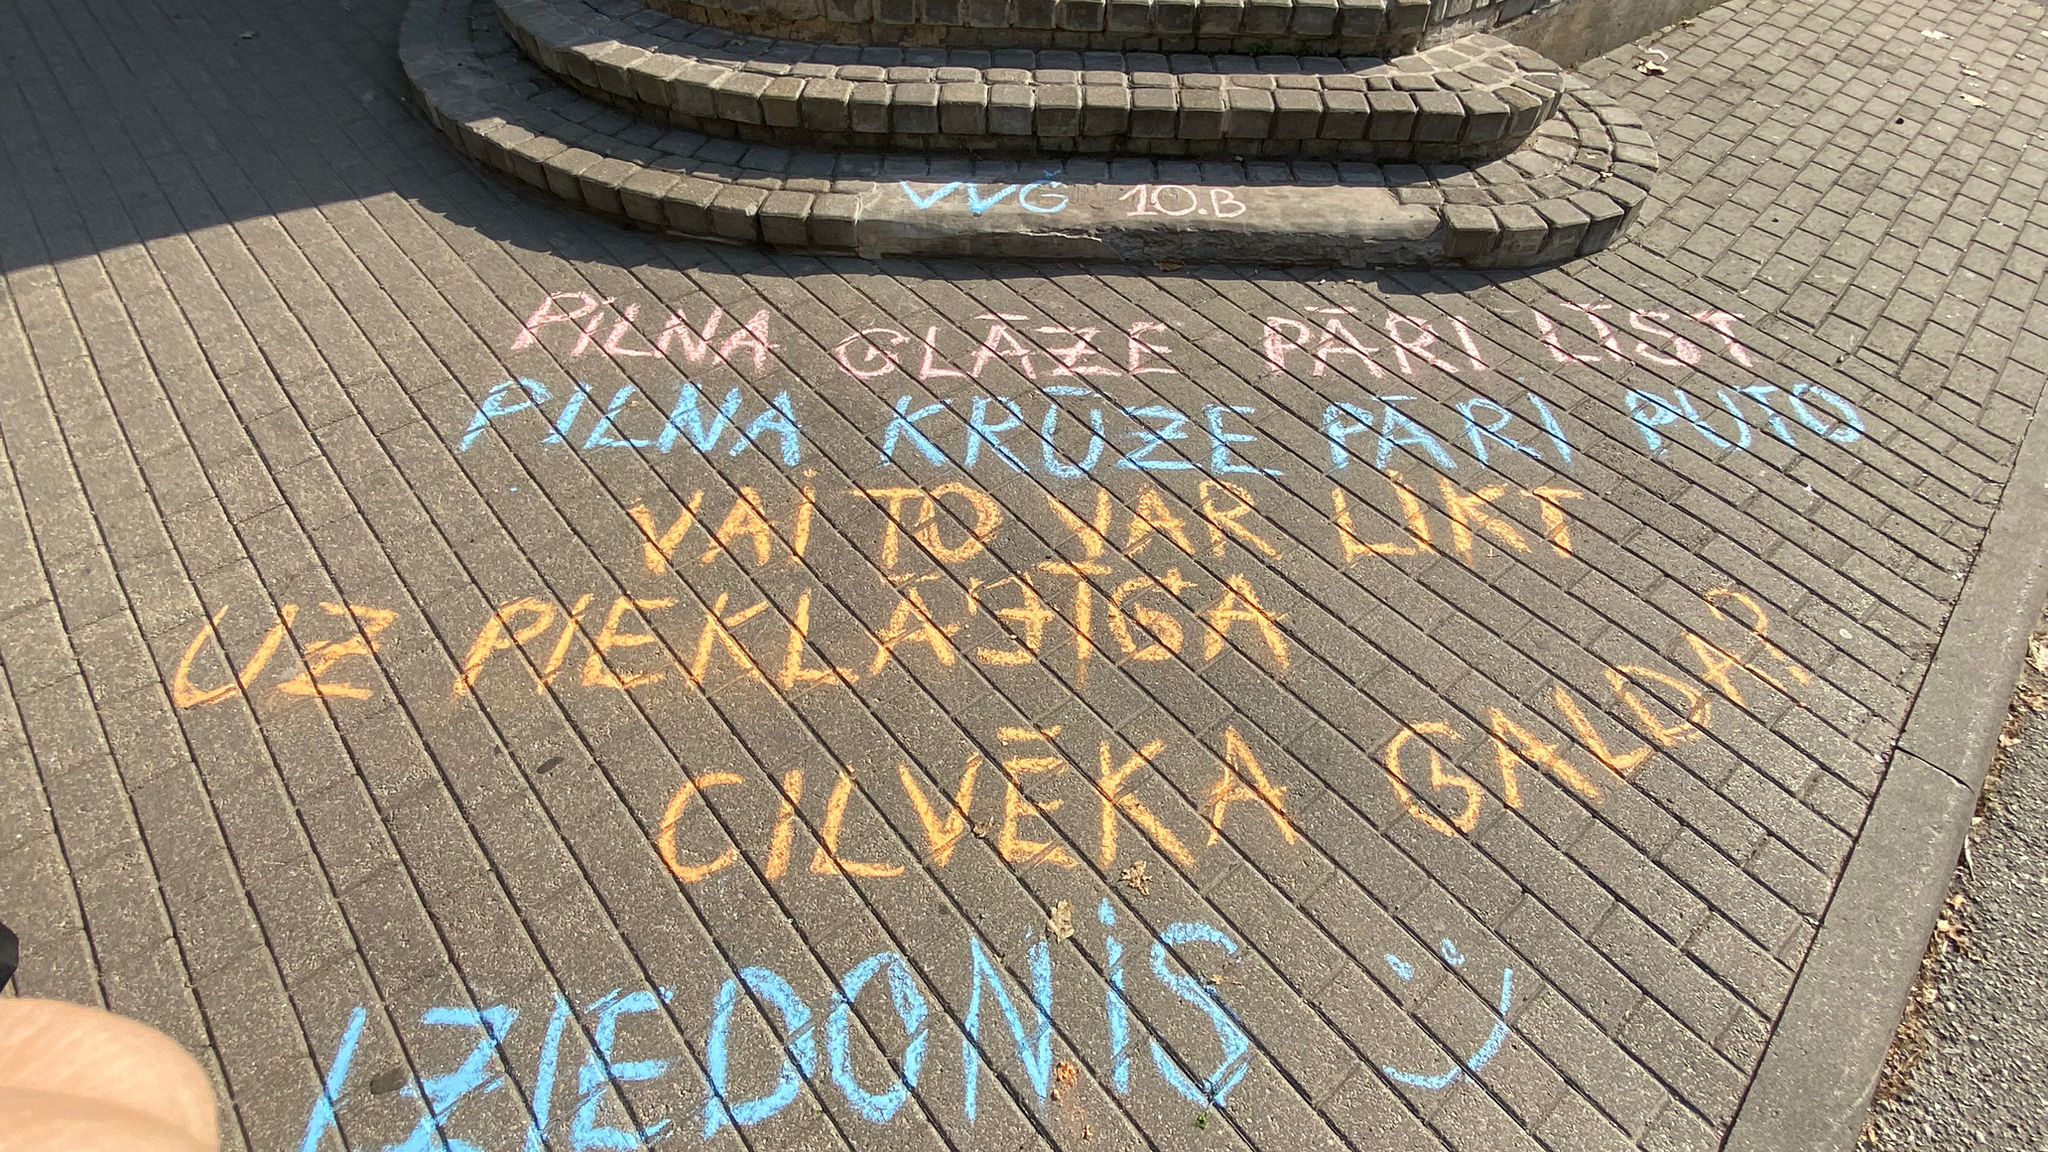 VVĢ 10.B
PILNA GLĀZE PĀRI LĪST
PILNA KRŪZE PĀRI PUTO
VAI TO VAR LIKT
UZ PIEKLĀJĪGA
CILVĒKA GALDA?
IZIEDONIS :)